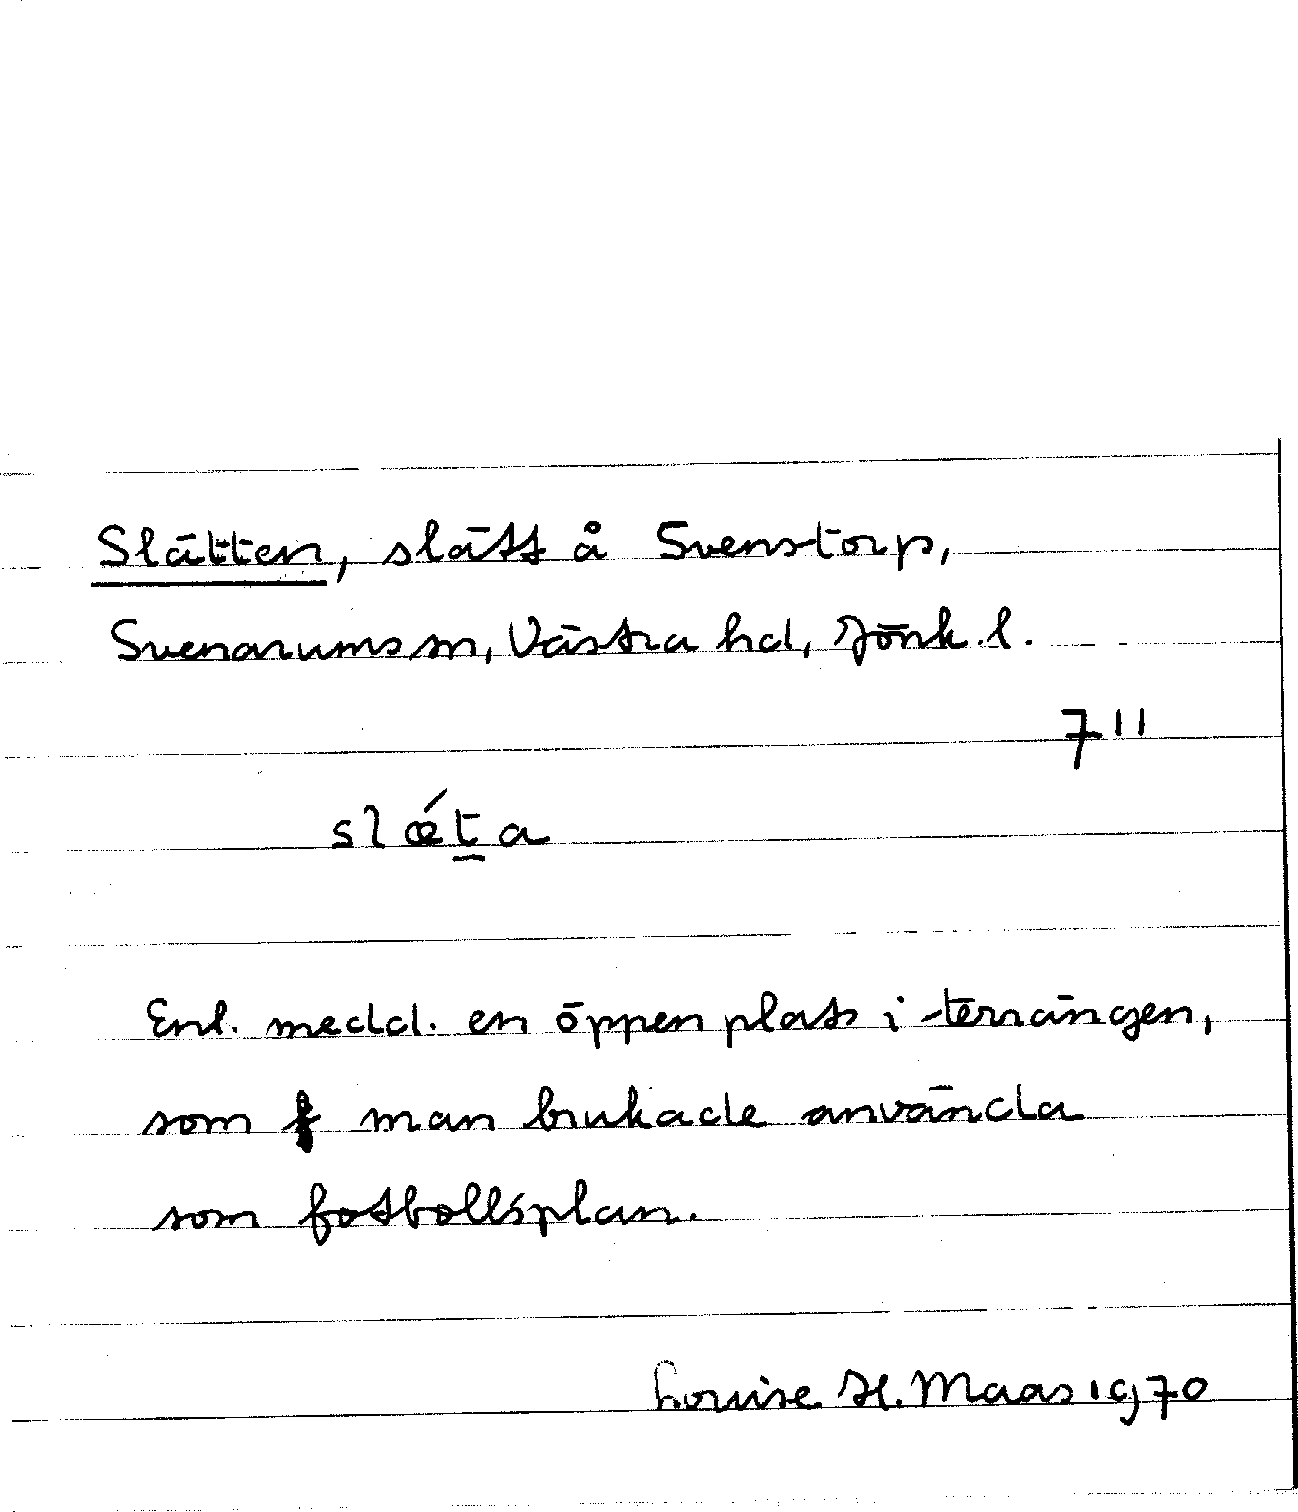 Slätten, slätt å Svenstorp,
Svenarums sn, Västra hd, Jönk. l.
7 11
slǽt̲a
Enl. medd. en öppen plats i terrängen,
som man brukade använda
som fotbollsplan.
Louise H. Maas 1970